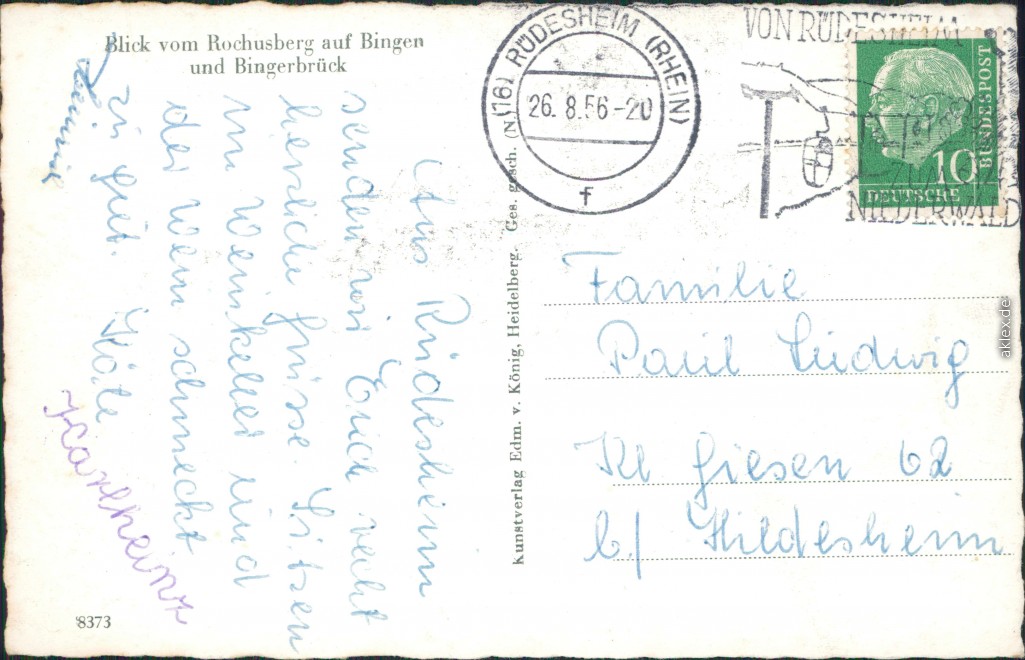 Blick vom Rochusberg auf Bingen
und Bingerbrück
Aus Rüdesheim
senden wir Euch recht
herzliche Grüsse. Sitzen
im Weinkeller und
der Wein schmeckt
zu gut. Käte
Karlheinz
8373
Kunstverlag Edm. v. König, Heidelberg. Ges. gesch. (N)
(16) RÜDESHEIM (RHEIN)
26.8.56-20
f
VON RÜDESHEIM
ZUM
NIEDERWALD
10
DEUTSCHE
BUNDESPOST
Familie
Paul Ludwig
Kl Giesen 62
b/ Hildesheim
aklex.de